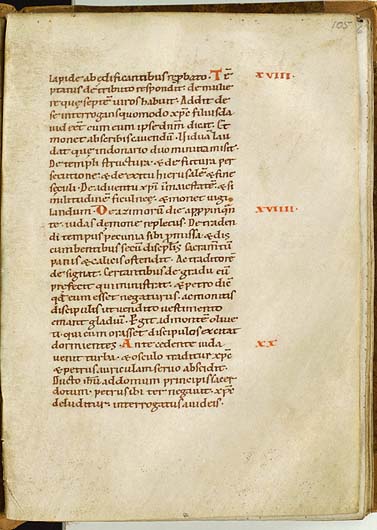 105
lapide ab edificantibus reprobato. Te XVIII.
ptatus de tributo respondit. de mulie
re que septem uiros habuit. Addit de
se interrogans quomodo xpc filius da
uid e cum eum ipse dnm dicat. Et
monet a scribis auendum. Uidua lau
dat que in donario duo minuta misit.
De templi structura. & de fictura per
secutione. & de exitu hierusalem & fine
seculi. De aduentu xpi in maiestate. & si
militudine ficulnee. & monet uigi
landum. De azimorum die appropinquan XVIIII.
te. iudas demone repletus. De traden
di tempus pecunia sibi pmissa. & dis
cumbentibus secum discipulis sacramtu
panis & calicis ostendit. Ac traditore
designat. Certantibus de gradu eum
prefecit qui ministrat. & petro dicit
qd eum esset negaturus. ac monitis
discipulis ut uendito uestimento
emant gladium. Egit ad monte oliue
ti. qui cum orasset discipulos excitat
dormientes. Antecedente iuda XX.
uenit turba. & osculo traditur xpc
& petrus auriculam seruo abscidit.
Ducto ihu ad domum principis sacer
dotum. petrus ibi ter negauit. xpc
deluditur. interrogatus a iudeis.